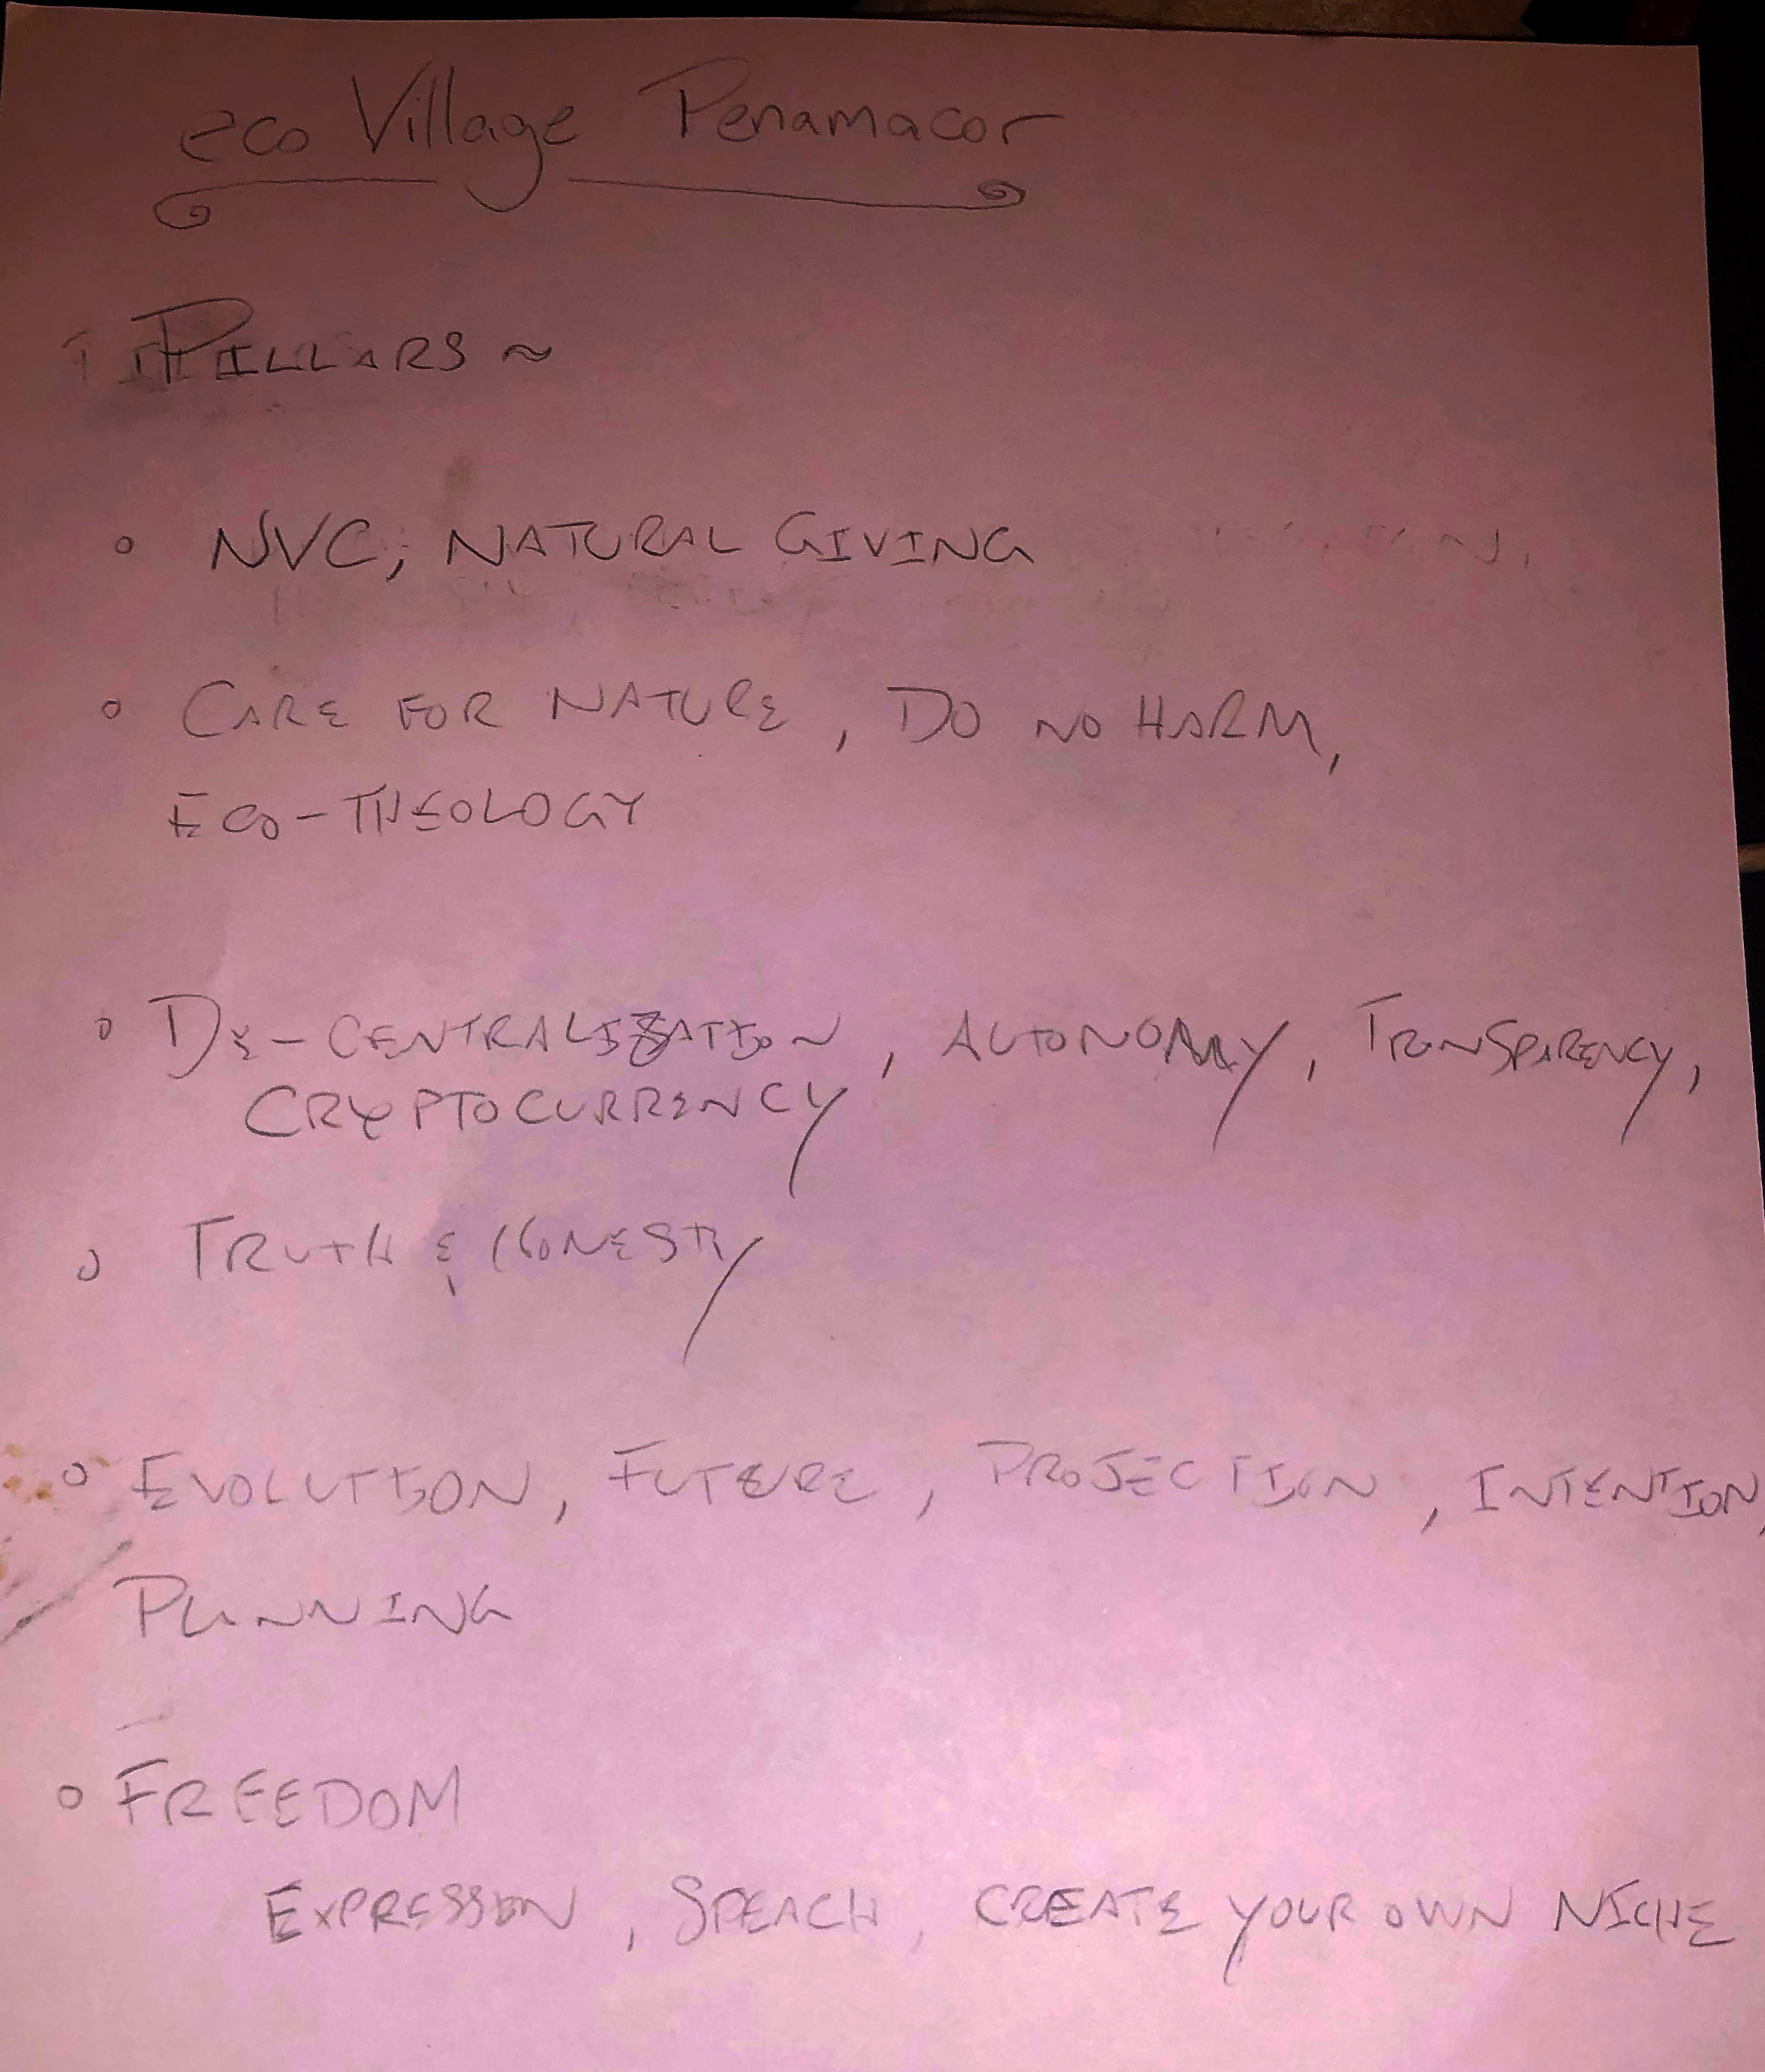 eco Village Penamacor
PILLARS ~
° NVC, NATURAL GIVING
° CARE FOR NATURE, DO NO HARM,
ECO-THEOLOGY
° DE-CENTRALIZATION, AUTONOMY, TRANSPARENCY,
CRYPTOCURRENCY
° TRUTH & HONESTY
° EVOLUTION, FUTURE, PROJECTION, INTENTION,
PLANNING
° FREEDOM
EXPRESSION, SPEACH, CREATE YOUR OWN NICHE